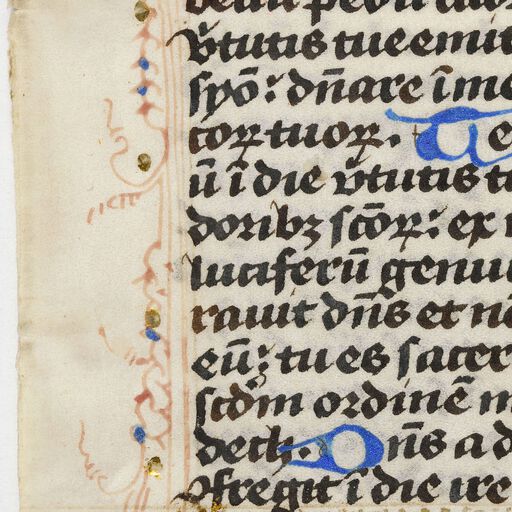 v̄tutis tue emit
syō: dn̄are ī me
coꝝ tuoꝝ. Te
ū ī die v̄tutis t
doribꝫ sc̄oꝝ: ex
luciferū genu
rauit dn̄s et n
eū: tu es sacer
scd̄m ordinē m
dech. Dn̄s a d
ꝯfregit ī die ire